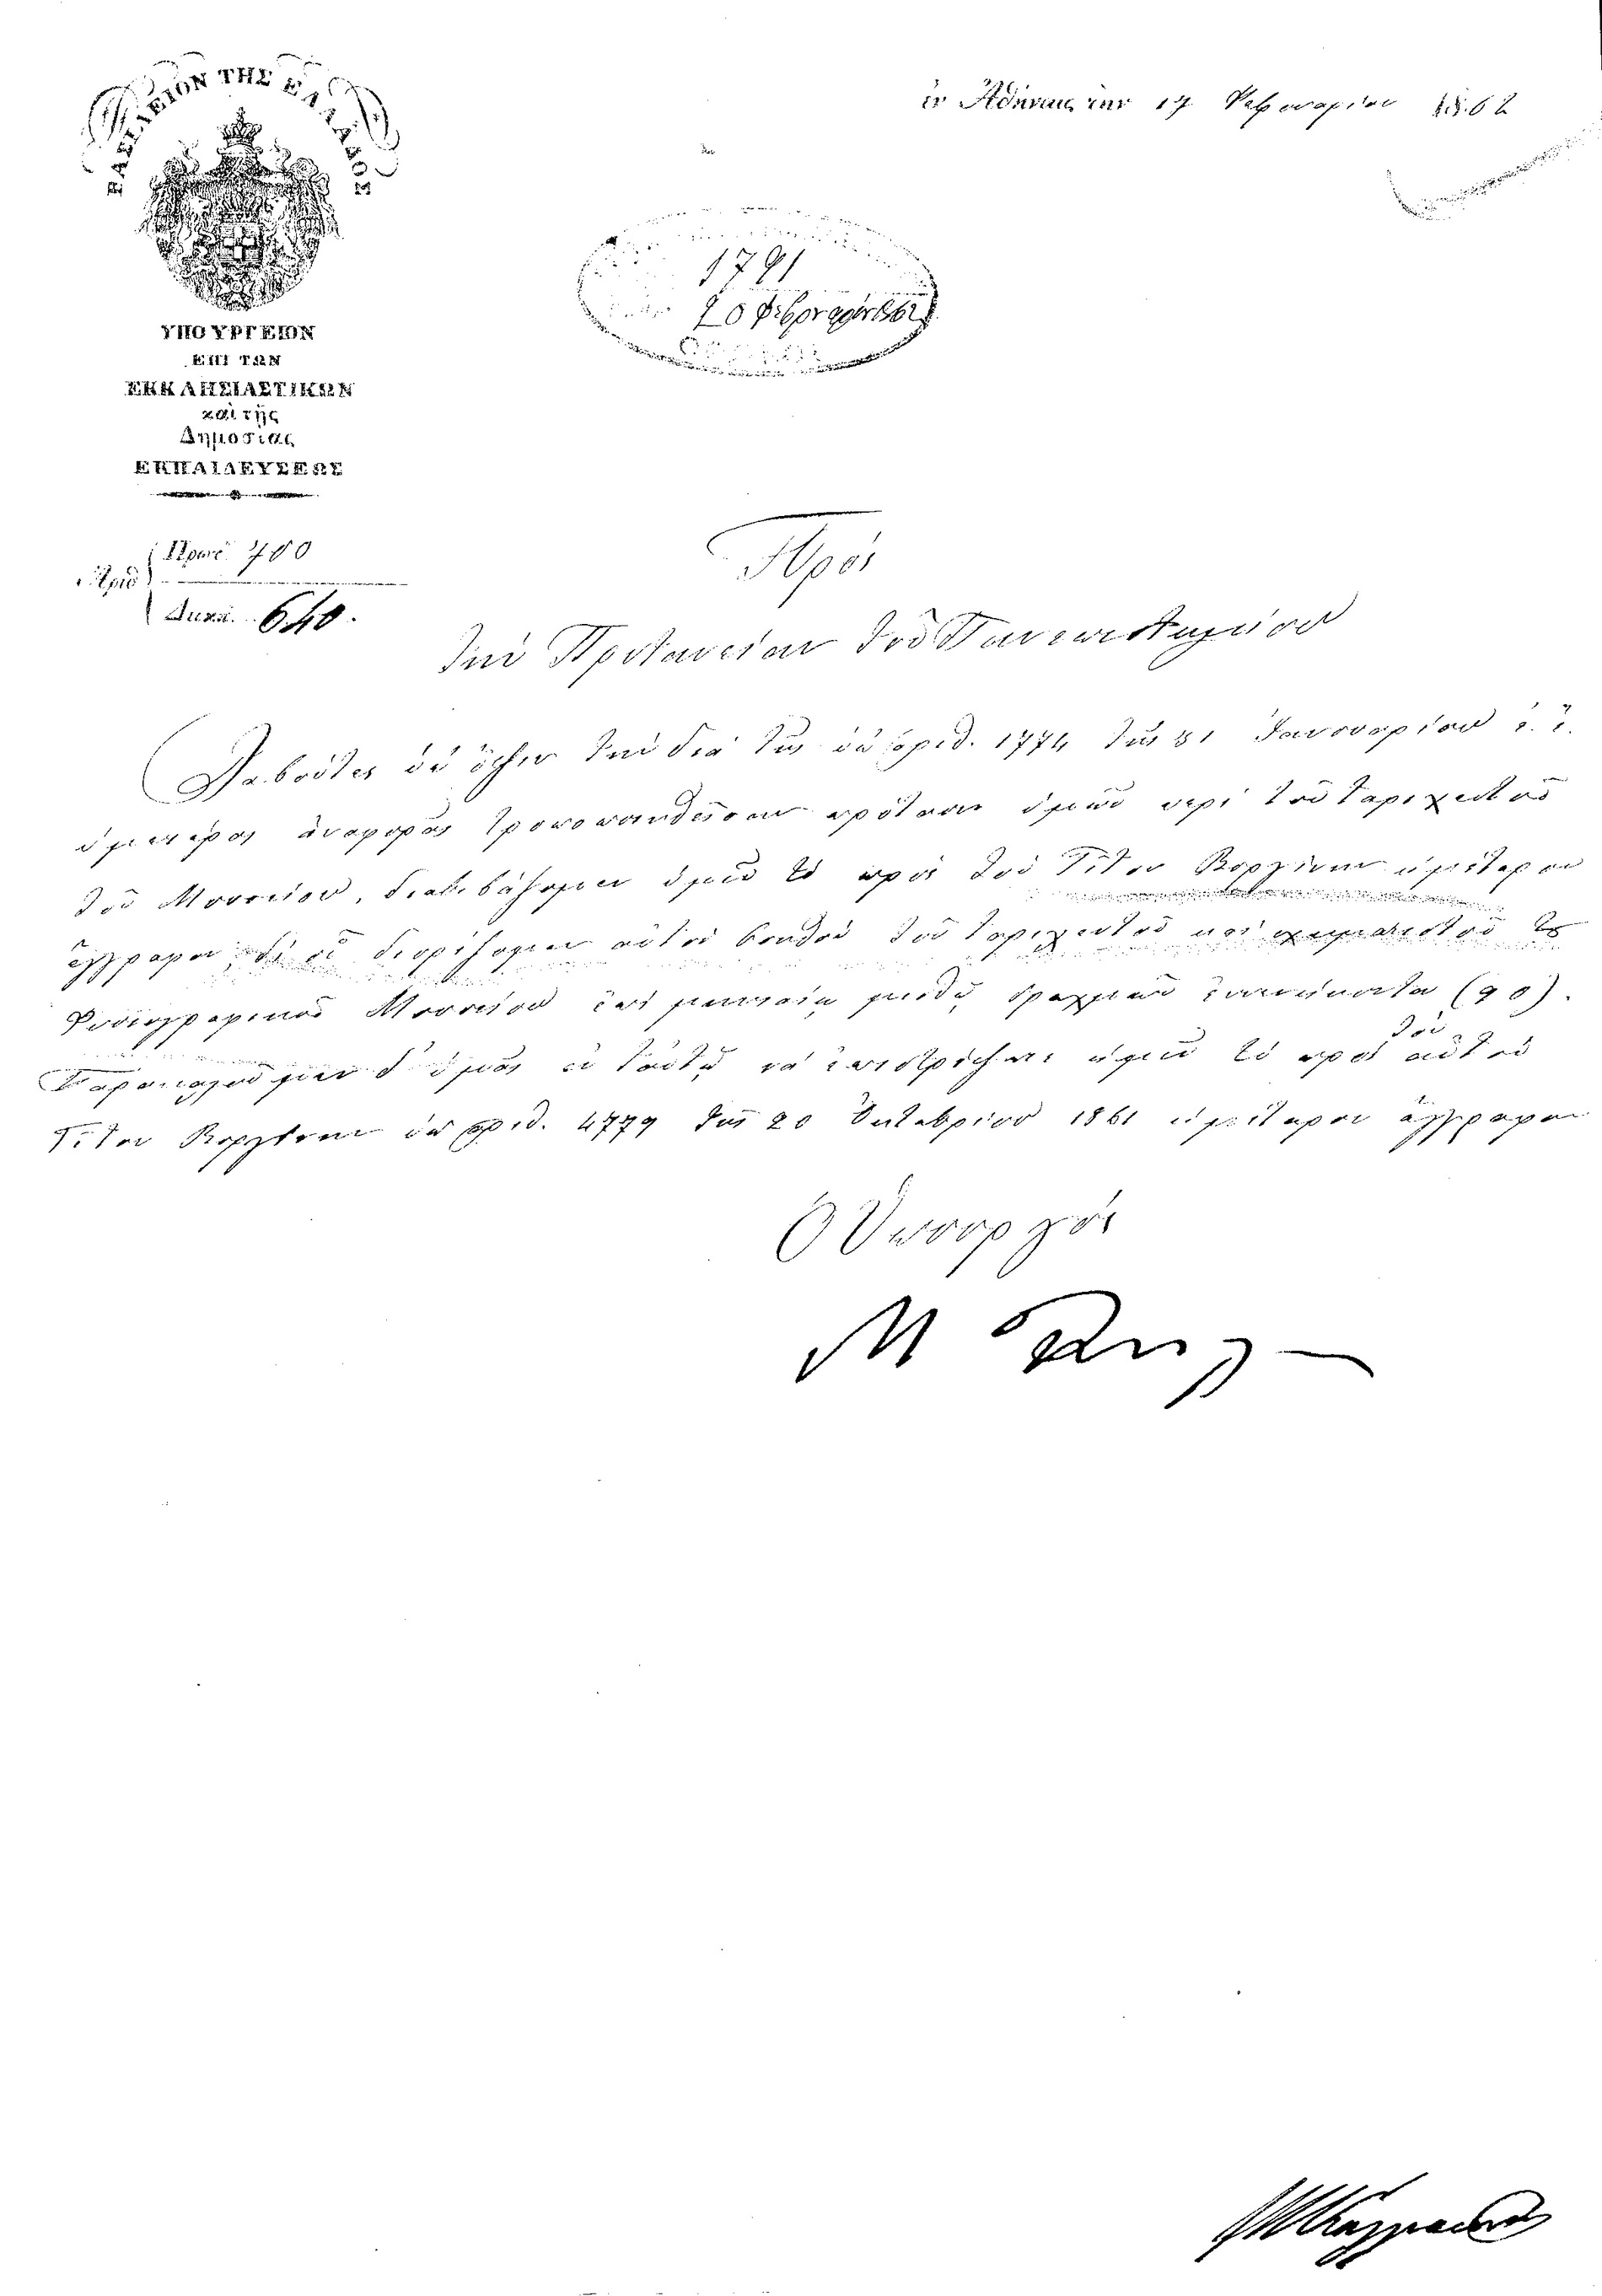 ΒΑΣΙΛΕΙΟΝ ΤΗΣ ΕΛΛΑΔΟΣ
ΥΠΟΥΡΓΕΙΟΝ
ΕΠΙ ΤΩΝ
ΕΚΚΛΗΣΙΑΣΤΙΚΩΝ
καὶ τῆς
Δημοσίας
ΕΚΠΑΙΔΕΥΣΕΩΣ
Πρωτ. 700
Ἀριθ.
Διεκπ. 640.
ἐν Ἀθήναις τὴν 17 Φεβρουαρίου 1862
1791
20 Φεβρουαρίου 1862
Πρὸς
Τὴν Πρυτανείαν τοῦ Πανεπιστημίου
Λαβόντες ὑπ' ὄψιν τὴν διὰ τῆς ὑπ' ἀριθ. 1774 τῆς 31 Ἰανουαρίου ἐ. ἔ.
ὑμετέρας ἀναφορᾶς τροποποιηθεῖσαν πρότασιν ὑμῶν περὶ τοῦ ταριχευτοῦ
τοῦ Μουσείου, διαβιβάζομεν ὑμῖν τὸ πρὸς τὸν Τίτον ἡμέτερον
ἔγγραφον, δι' οὗ διορίζομεν αὐτὸν βοηθὸν τοῦ ταριχευτοῦ καὶ τοῦ
Φυσιογραφικοῦ Μουσείου ἐπὶ μηνιαίῳ μισθῷ δραχμῶν ἐνενήκοντα (90).
Παρακαλοῦμεν δ' ὑμᾶς ἐν ταὐτῷ νὰ ἐπιστρέψητε ἡμῖν τὸ πρὸς τὸν αὐτὸν
Τίτον ὑπ' ἀριθ. 4779 τῆς 20 Ὀκτωβρίου 1861 ἡμέτερον ἔγγραφον
Ὁ Ὑπουργὸς